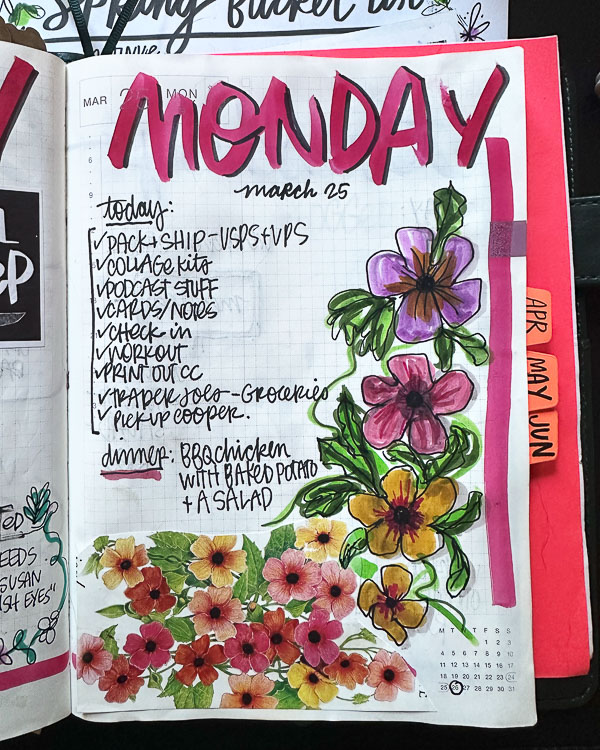 Spring Bucket
MAR
MON
MONDAY
march 25
6
9
today:
✓PACK + SHIP - USPS + UPS
✓COLLAGE KITS
✓PODCAST STUFF
✓CARDS/NOTES
✓CHECK IN
✓WORKOUT
✓PRINT OUT CC
✓TRADER JOES - GROCERIES
✓PICK UP COOPER.
dinner: BBQ CHICKEN
WITH BAKED POTATO
+ A SALAD
APR
MAY
JUN
EEDS
SUSAN
SH EYES"
M T W T F S S
1 2 3
4 5 6 7 8 9 10
11 12 13 14 15 16 17
18 19 20 21 22 23 24
25 26 27 28 29 30 31